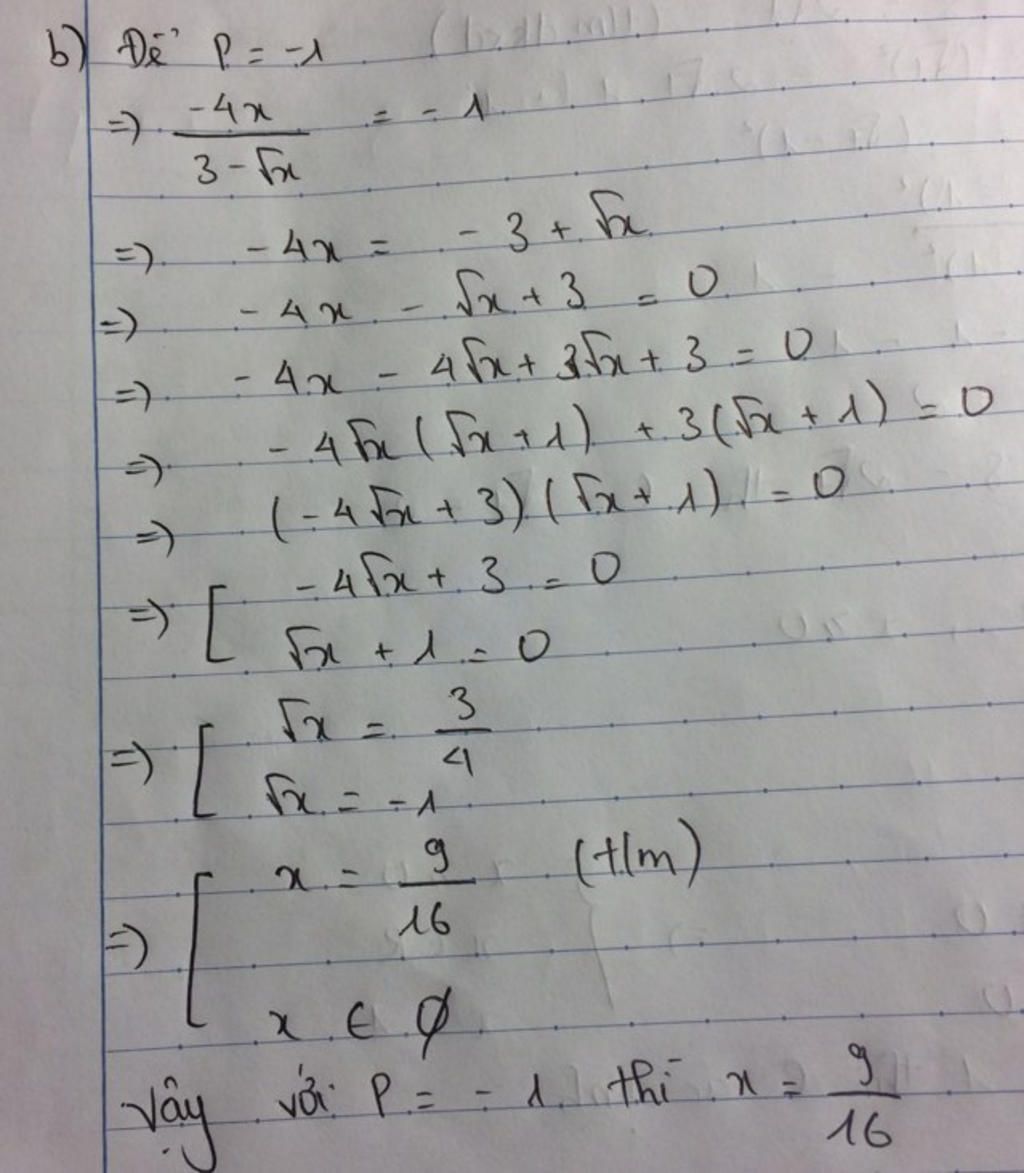 b) Để P = -1
=> -4x / (3 - √x) = -1
=> -4x = -3 + √x
=> -4x - √x + 3 = 0
=> -4x - 4√x + 3√x + 3 = 0
=> -4√x (√x + 1) + 3(√x + 1) = 0
=> (-4√x + 3)(√x + 1) = 0
=> [ -4√x + 3 = 0
√x + 1 = 0
=> [ √x = 3/4
√x = -1
=> [ x = 9/16 (t/m)
x ∈ ∅
Vậy với P = -1 thì x = 9/16